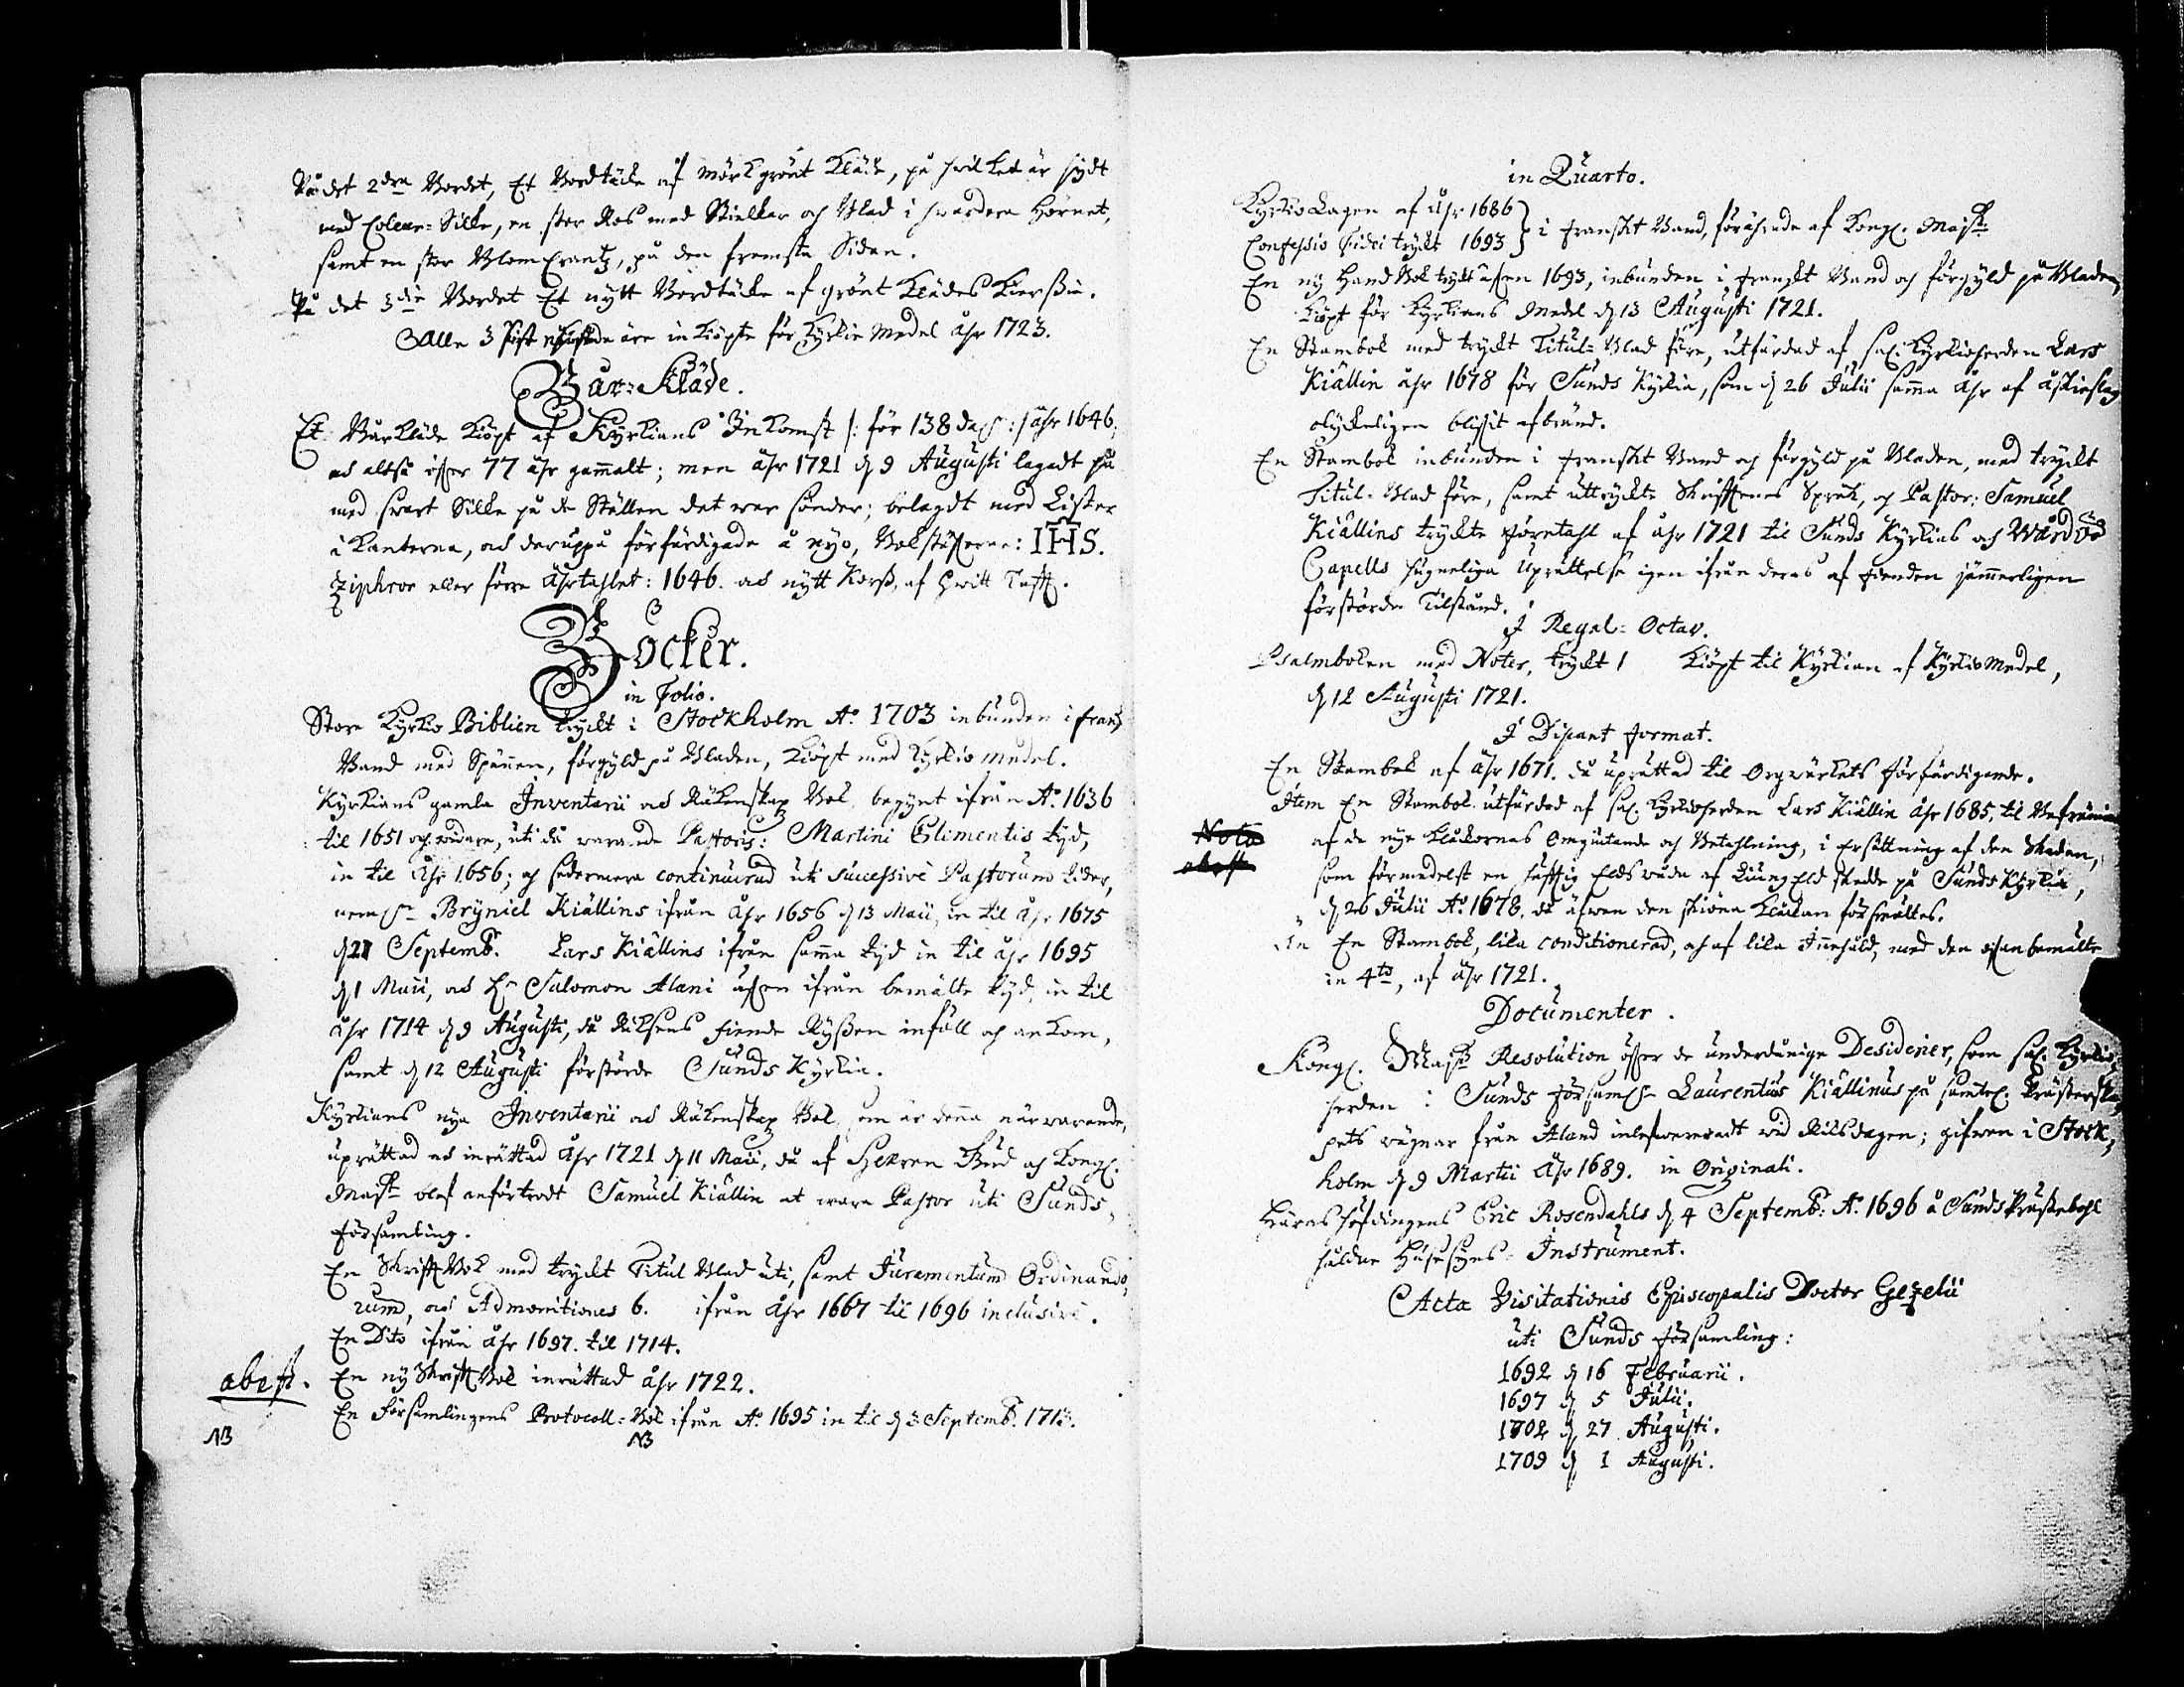 På det 2dra Bordet, Et Bordtäcke af mörkgrönt Kläde, på hwilket är sydt
med Coleur-Silke, en stor Ros med Stielkar och Blad i hwardera Hörnet,
samt en stor Blom Crantz, på den fremsta Sidan.
På det 3die Bordet Et nytt Bordtäcke af grönt Klädes Kierssin.
Alla 3 sist äre inkiöpte för Kyrkio Medel åhr 1723.
Bår-Kläde.
Et Bårkläde kiöpt af Kyrkians Inkomst /: för 138 dal :/ åhr 1646,
och altså öfwer 77 åhr gamalt; men åhr 1721 d. 9 Augusti lagadt
med swart Silke på de Ställen det war sönder; belagdt med Lister
i kanterna, och deruppå förfärdigade å nyo, Bokstäfwerne: IHS.
Ziphror eller förre Åhrtahlet: 1646. och nytt Korss, af hwitt Tafft.
Böcker.
in Folio.
Store Kyrkio Biblien tryckt i Stockholm A:o 1703 inbunden i frans
Band med Spännen, förgyld på Bladen, kiöpt med Kyrkio medel.
Kyrkians gamla Inventarii och Räkenskap Bok, begynt ifrån A:o 1636
til 1651 och widare, uti då warande Pastoris: Martini Climentis tyd,
in til Åhr 1656; och sedermera continuerad uti successive Pastorum tider,
neml. Hr Bryniel Kiällins ifrån Åhr 1656 d. 13 Maii, in til åhr 1675
d. 21 Septemb. Lars Kiällins ifrån samma tyd in til åhr 1695
d. 1 Maii, och Hr Salomon Alani äfwen ifrån bemälte tyd, in til
åhr 1714 d. 9 Augusti, då Riksens fiende Ryssen inföll och ankom,
samt d. 12 Augusti förstörde Sunds Kyrkia.
Kyrkians nya Inventarii och Räkenskap Bok, som är denna närwarande,
uprättad och inrättad Åhr 1721 d. 11 Maii, då af Herren Gud och Kongl.
Majst blef anförtrodt Samuel Kiällin at wara Pastor uti Sunds
församling.
En Skrifft Bok med tryckt Titul Blad uti, samt Juramentum Ordinando,
rum, och Admonitiones 6. ifrån Åhr 1667 til 1696 inclusive.
En Dito ifrån Åhr 1697. til 1714.
abest. En ny Skrifft Bok inrättad åhr 1722.
En Församlingens Protocoll-Bok ifrån A:o 1695 in til d. 3 Septemb. 1713.
NB NB
in Quarto.
Kyrkio Lagen af åhr 1686
Confessio fidei tryckt 1693 } i Franskt Band, förährade af Kongl. Majst
En ny Hand Bok tryckt åhren 1693, inbunden i Franskt Band och förgyld på Bladen,
kiöpt för Kyrkians Medel d. 13 Augusti 1721.
En Stambok med tryckt Titul-Blad före, utfärdad af sal. Kyrkioherden Lars
Kiällin åhr 1678 för Sunds Kyrkia, som d. 26 Julii samma åhr af åskieslag
olyckeligen blifwit afbränd.
En Stambok inbunden i Franskt Band och förgyld på Bladen, med tryckt
Titul-Blad före, samt uttryckte Skrifftenes Språk, och Pastor: Samuel
Kiällins tryckte Företahl af åhr 1721 til Sunds Kyrkias och Wårdöö
Capells hugneliga Uprättelse igen ifrån deras af fienden jämmerligen
förstörde Tilstånd.
I Regal-Octav.
Psalmboken med Noter, tryckt 1 Kiöpt til Kyrkian af Kyrkio Medel,
d. 12 Augusti 1721.
I Dipant format.
En Stambok af Åhr 1671. då uprättad til Orgwärkets förfärdigande.
Item En Stambok utfärdad af sal. Kyrkioherden Lars Kiällin åhr 1685, til
Nota af de nye Klåckornas Omgiutande och Betahlning, i Ersättning af den Skadan,
abest som förmedelst en häfftig Elds wåda af Liungeld skedde på Sunds Kyrkia,
d. 26 Julii A:o 1678. då äfwen den sköna Klåckan försmältes.
En Stambok, lika conditionerad, och af lika Innehåld, med den ofwanbemälte
in 4to, af åhr 1721.
Documenter.
Kongl. Majst Resolution öfwer de underdånige Desiderier, som sal. Kyrkio,
herden i Sunds Församl. Laurentius Kiällinus på samtel. Prästerska,
pets wägnar från Åland inlefwereradt wid Riksdagen; gifwen i Stock,
holm d. 9 Martii Åhr 1689. in Originali.
Häradshöfdingens Eric Rosendahls d. 4 Septemb: A:o 1696 å Sunds Prästebohl
håldne Husesyns-Instrument.
Acta Visitationis Episcopalis Doctor Gezelii
uti Sunds församling:
1692 d. 16 Februarii.
1697 d. 5 Julii.
1702 d. 27 Augusti.
1709 d. 1 Augusti.